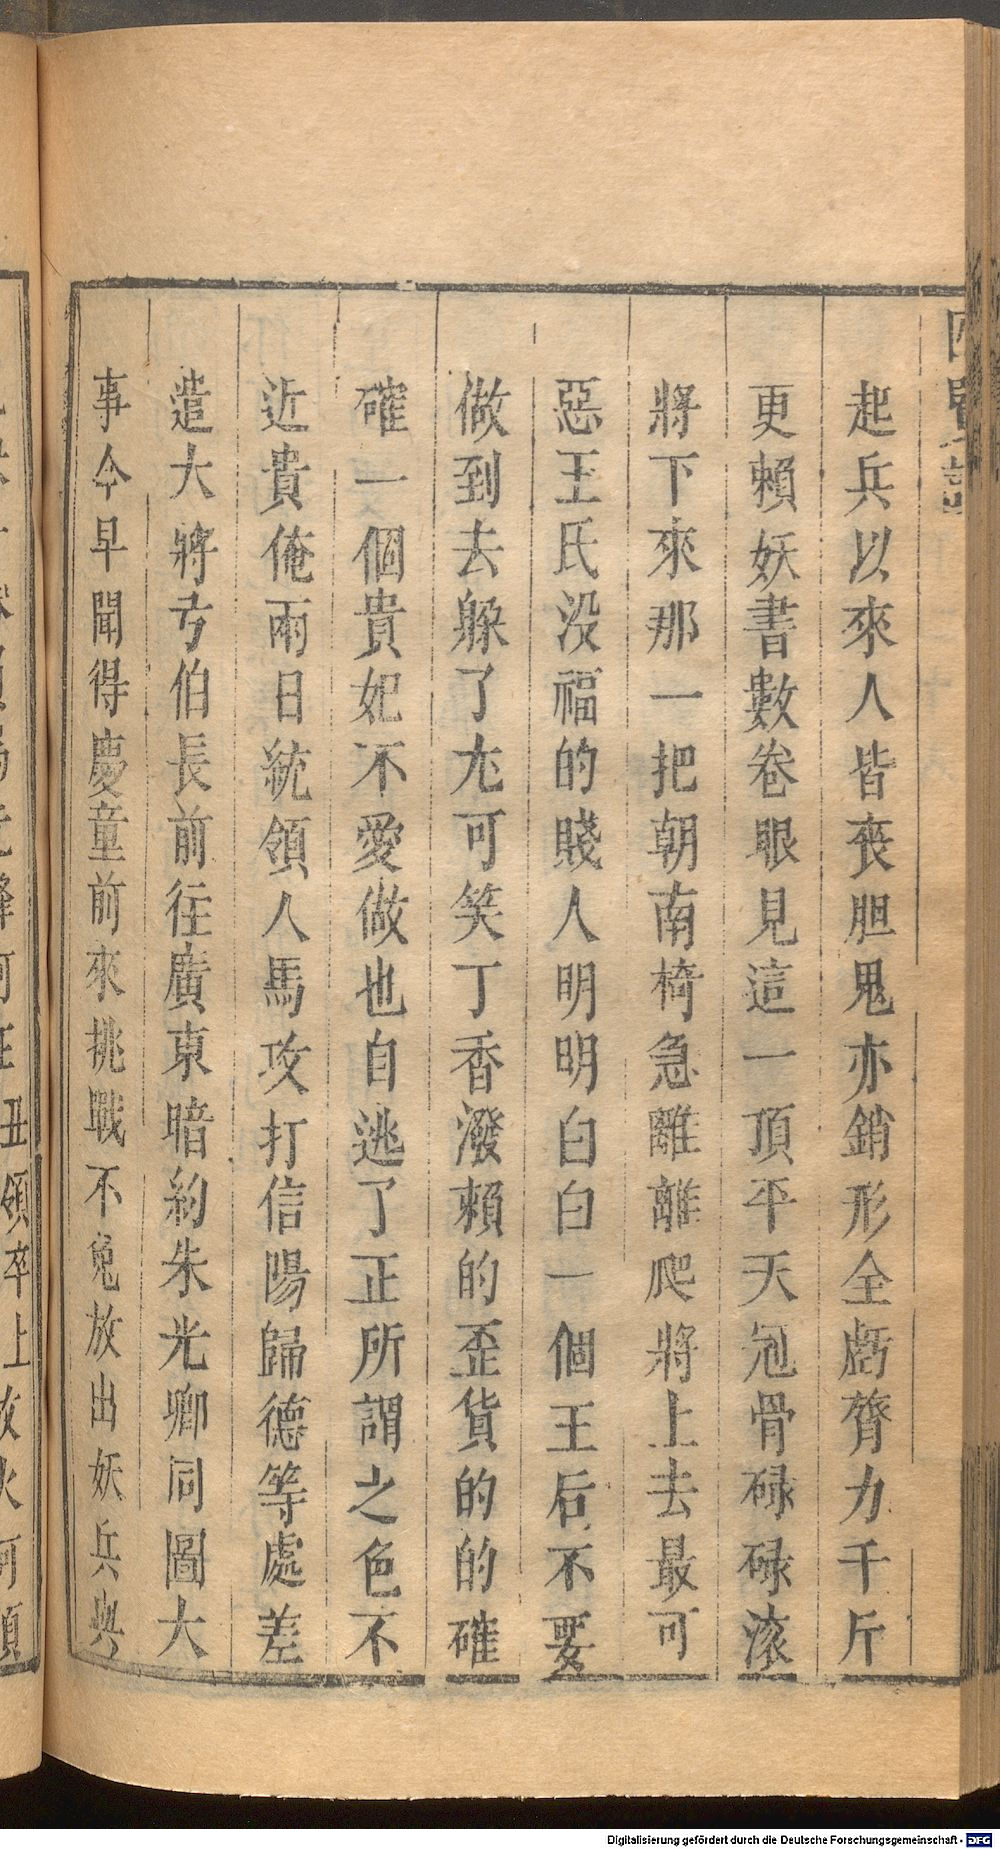 起兵以來人皆丧胆鬼亦銷形全虧膂力千斤
更賴妖書數卷眼見這一頂平天冠骨碌碌滚
將下來那一把朝南椅急離離爬將上去最可
惡王氏没福的賤人明明白白一個王后不要
做到去躲了尤可笑丁香潑賴的歪貨的的確
確一個貴妃不愛做也自逃了正所謂之色不
近貴俺兩日統領人馬攻打信陽歸德等處差
遣大將方伯長前往廣東暗約朱光卿同圖大
事今早聞得慶童前來挑戰不免放出妖兵與
丑領卒上放火
Digitalisierung gefördert durch die Deutsche Forschungsgemeinschaft - DFG